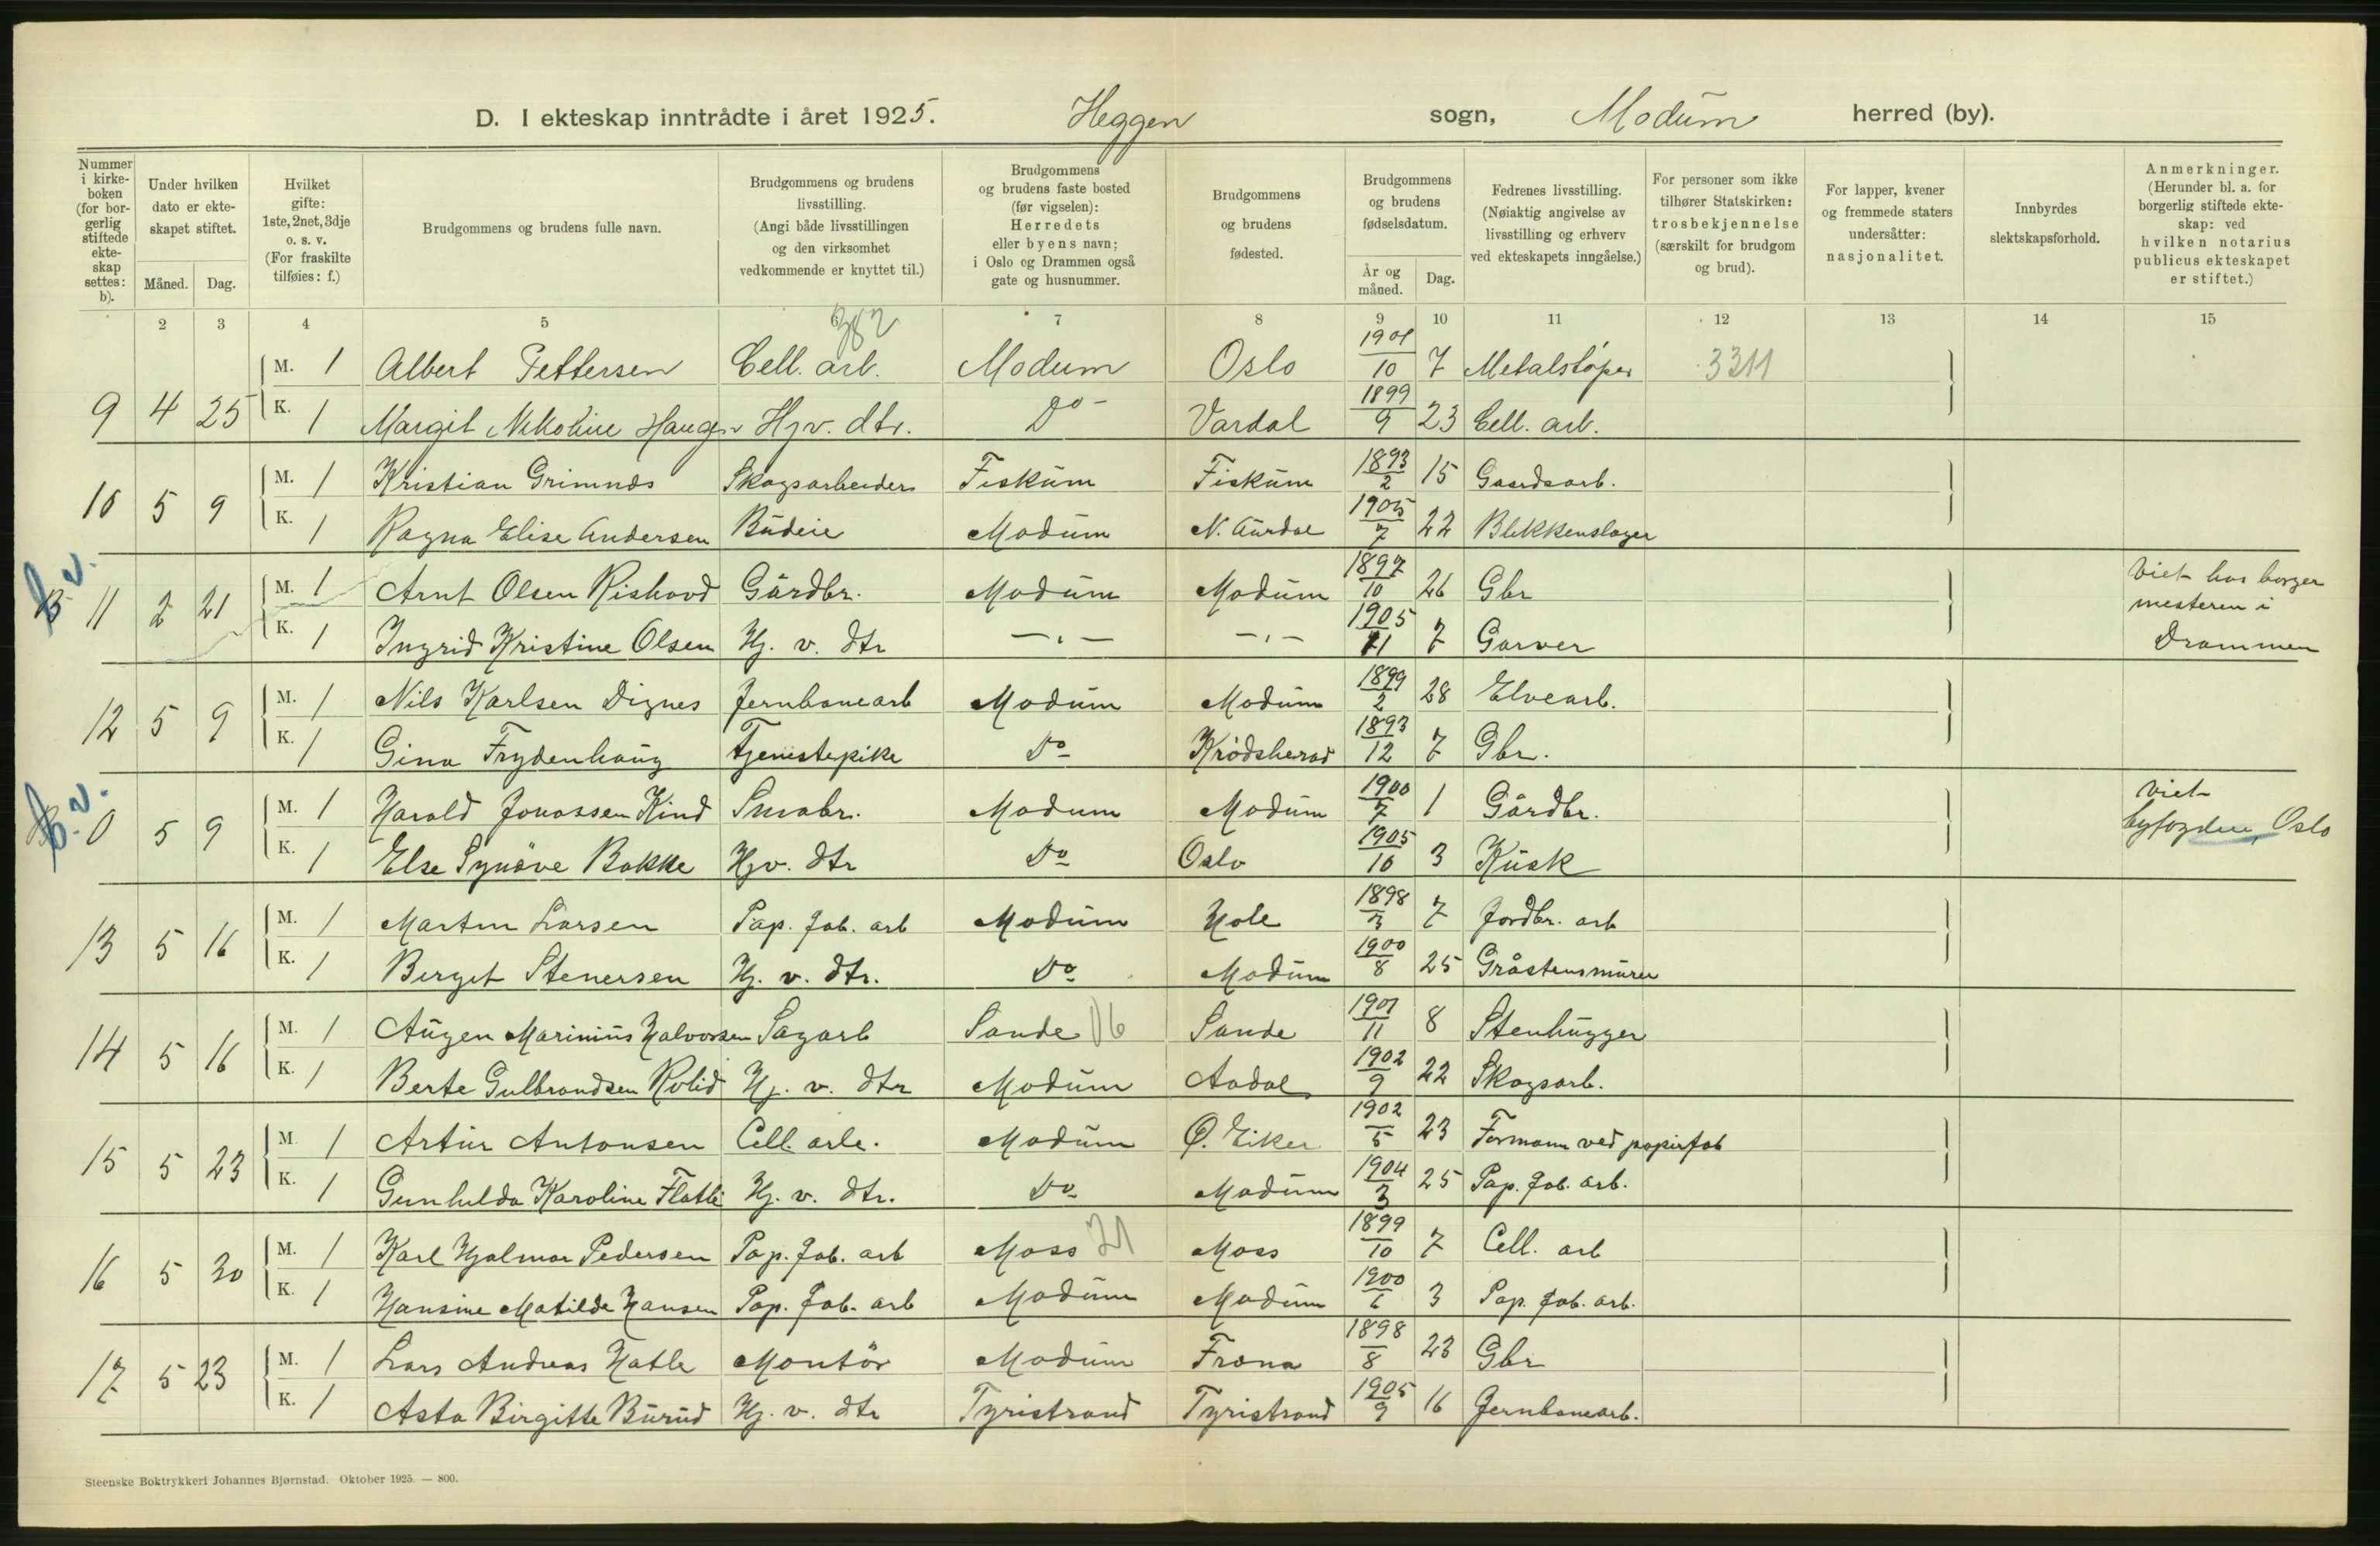 D. I ekteskap inntrådte i året 1925. Heggen sogn, Modum herred (by).
Nummer i kirke-boken (for bor-gerlig stiftede ekte-skap settes: b).
Under hvilken dato er ekte-skapet stiftet.
Måned. Dag.
Hvilket gifte: 1ste, 2net, 3dje o. s. v. (For fraskilte tilføies: f.)
Brudgommens og brudens fulle navn.
Brudgommens og brudens livsstilling. (Angi både livsstillingen og den virksomhet vedkommende er knyttet til.)
Brudgommens og brudens faste bosted (før vigselen): Herredets eller byens navn; i Oslo og Drammen også gate og husnummer.
Brudgommens og brudens fødested.
Brudgommens og brudens fødselsdatum.
År og måned. Dag.
Fedrenes livsstilling. (Nøiaktig angivelse av livsstilling og erhverv ved ekteskapets inngåelse.)
For personer som ikke tilhører Statskirken: trosbekjennelse (særskilt for brudgom og brud).
For lapper, kvener og fremmede staters undersåtter: nasjonalitet.
Innbyrdes slektskapsforhold.
Anmerkninger. (Herunder bl. a. for borgerlig stiftede ekte-skap: ved hvilken notarius publicus ekteskapet er stiftet.)
2 3 4 5 7 8 9 10 11 12 13 14 15
382
M. 1 Albert Pettersen Cell. arb. Modum Oslo 1901/10 7 Metalstøper 3311
9 4 25 K. 1 Margit Nikoline Haugen Hjv. dtr. Do Vardal 1899/9 23 Cell. arb.
M. 1 Kristian Grimnds Skogsarbeider Fiskum Fiskum 1893/2 15 Gaardsarb.
10 5 9 K. 1 Ragna Elise Andersen Budeie Modum N. Aurdal 1905/7 22 Blikkenslager
B. v. 11 2 21 M. 1 Arnt Olsen Rishovd Gårdbr. Modum Modum 1897/10 26 Gbr Viet hos borger
mesteren i
K. 1 Ingrid Kristine Olsen Hj. v. dtr —„— —„— 1905/11 7 Garver Drammen
M. 1 Nils Karlsen Dignes Jernbanearb Modum Modum 1899/2 28 Elvearb.
12 5 9 K. 1 Gina Frydenhaug Tjenestepike Do Krødsherad 1893/12 7 Gbr.
B. v. 0 5 9 M. 1 Harald Jonassen Kind Småbr. Modum Modum 1900/7 1 Gårdbr. viet
byfogden, Oslo
K. 1 Else Synøve Bakke Hjv. dtr Do Oslo 1905/10 3 Kusk
M. 1 Martin Larsen Pap. fab. arb Modum Hole 1898/3 7 Jordbr. arb
13 5 16 K. 1 Berget Stenersen Hj. v. dtr. Do Modum 1900/8 25 Gråstensmurer
M. 1 Augen Marinius Halvorsen Sagarb Sande 16 Sande 1901/11 8 Stenhugger
14 5 16 K. 1 Berte Gulbrandsen Rolid Hj. v. dtr Modum Aadal 1902/9 22 Skogsarb.
M. 1 Artur Antonsen Cell. arb. Modum Ø. Eiker 1902/5 23 Formann ved papirfab
15 5 23 K. 1 Gunhilda Karoline Flatli Hj. v. dtr. Do Modum 1904/3 25 Pap. fab. arb.
M. 1 Karl Hjalmar Pedersen Pap. fab. arb Moss 21 Moss 1899/10 7 Cell. arb
16 5 30 K. 1 Hansine Matilde Hansen Pap. fab. arb Modum Modum 1900/6 3 Pap. fab. arb.
M. 1 Lars Andreas Hatle Montör Modum Fræna 1898/8 23 Gbr
17 5 23 K. 1 Asta Birgitte Burud Hj. v. dtr Tyristrand Tyristrand 1905/9 16 Jernbanearb.
Steenske Boktrykkeri Johannes Bjørnstad. Oktober 1925. — 800.